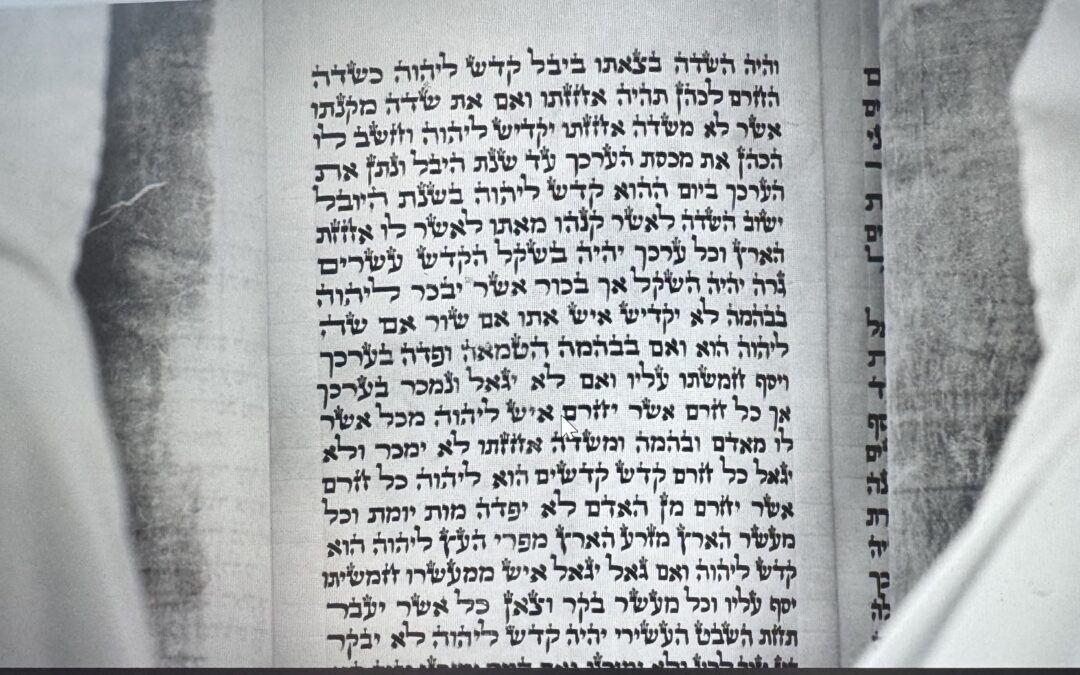 והיה השדה בצאתו ביבל קדש ליהוה כשדה
החרם לכהן תהיה אחזתו ואם את שדה מקנתו
אשר לא משדה אחזתו יקדיש ליהוה וחשב לו
הכהן את מכסת הערכך עד שנת היבל ונתן את
הערכך ביום ההוא קדש ליהוה בשנת היובל
ישוב השדה לאשר קנהו מאתו לאשר לו אחזת
הארץ וכל ערכך יהיה בשקל הקדש עשרים
גרה יהיה השקל אך בכור אשר יבכר ליהוה
בבהמה לא יקדיש איש אתו אם שור אם שה
ליהוה הוא ואם בבהמה הטמאה ופדה בערכך
ויסף חמשתו עליו ואם לא יגאל ונמכר בערכך
אך כל חרם אשר יחרם איש ליהוה מכל אשר
לו מאדם ובהמה ומשדה אחזתו לא ימכר ולא
יגאל כל חרם קדש קדשים הוא ליהוה כל חרם
אשר יחרם מן האדם לא יפדה מות יומת וכל
מעשר הארץ מזרע הארץ מפרי העץ ליהוה הוא
קדש ליהוה ואם גאל יגאל איש ממעשרו חמשיתו
יסף עליו וכל מעשר בקר וצאן כל אשר יעבר
תחת השבט העשירי יהיה קדש ליהוה לא יבקר